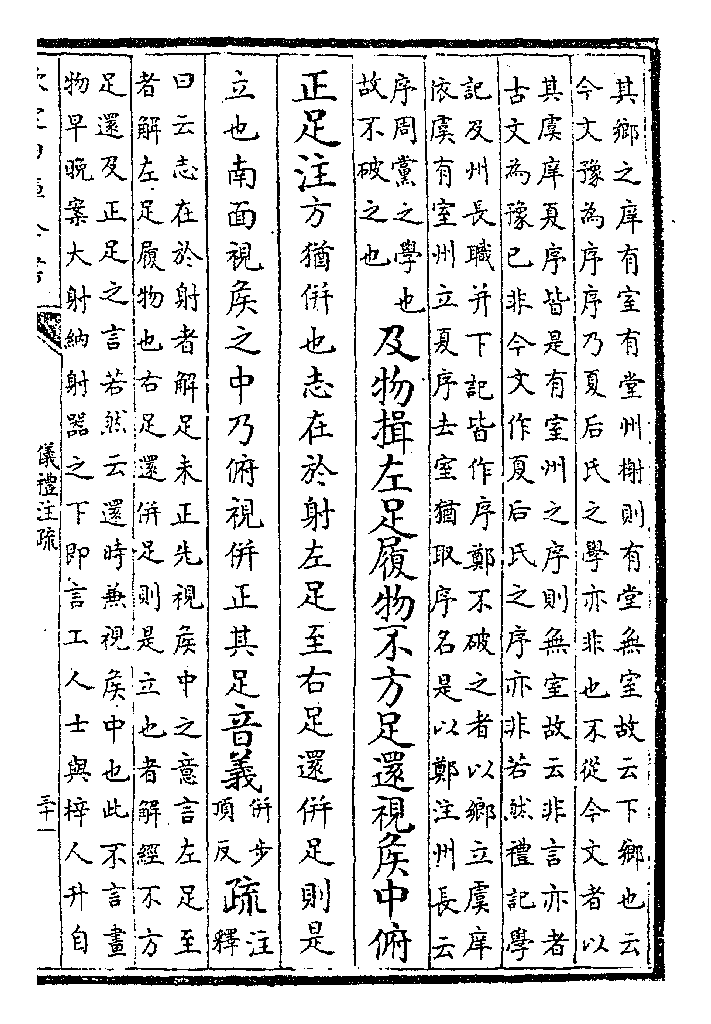 其鄉之庠有室有堂州榭則有堂無室故云下鄉也云
今文豫為序序乃夏后氏之學亦非也不從今文者以
其虞庠夏序皆是有室州之序則無室故云非言亦者
古文為豫已非今文作夏后氏之序亦非若然禮記學
記及州長職并下記皆作序鄭不破之者以鄉立虞庠
依虞有室州立夏序去室猶取序名是以鄭注州長云
序周黨之學也
故不破之也
及物揖左足履物不方足還視侯中俯
正足注方猶併也志在於射左足至右足還併足則是
立也南面視侯之中乃俯視併正其足音義
併步
頂反
疏
注
釋
曰云志在於射者解足未正先視侯中之意言左足至
者解左足履物也右足還併足則是立也者解經不方
足還及正足之言若然云還時無視侯中也此不言畫
物早晚案大射納射器之下即言工人士與梓人升自
儀禮注疏
三十一